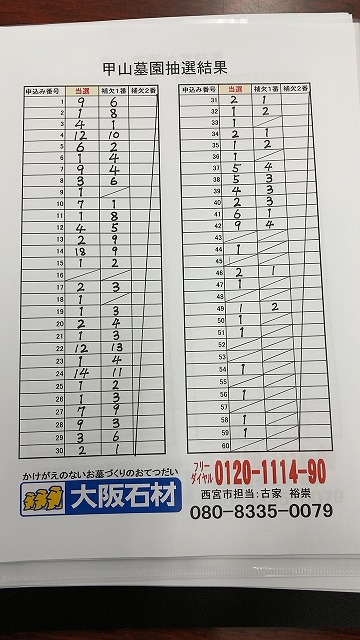 甲山墓園抽選結果
申込み番号 当選 補欠1番 補欠2番
1 9 6
2 1 8
3 4 1
4 12 10
5 6 2
6 1 4
7 9 4
8 3 6
9 1
10 7 1
11 1 8
12 4 5
13 2 9
14 18 9
15 1 2
16
17 2 3
18 1
19 1 3
20 2 4
21 1 3
22 12 13
23 1 4
24 14 11
25 1 2
26 1 3
27 7 9
28 9 3
29 3 6
30 2 1
申込み番号 当選 補欠1番 補欠2番
31 2 1
32 1 2
33 1
34 2 1
35 1 2
36 1
37 5 4
38 5 3
39 4 3
40 2 3
41 6 1
42 9 4
43
44 1
45
46 2 1
47
48
49 1 2
50 1
51 1
52
53
54 1
55
56
57
58 1
59 1
60
かけがえのないお墓づくりのおてつだい
大阪石材
フリーダイヤル 0120-1114-90
西宮市担当:古家 裕崇
080-8335-0079